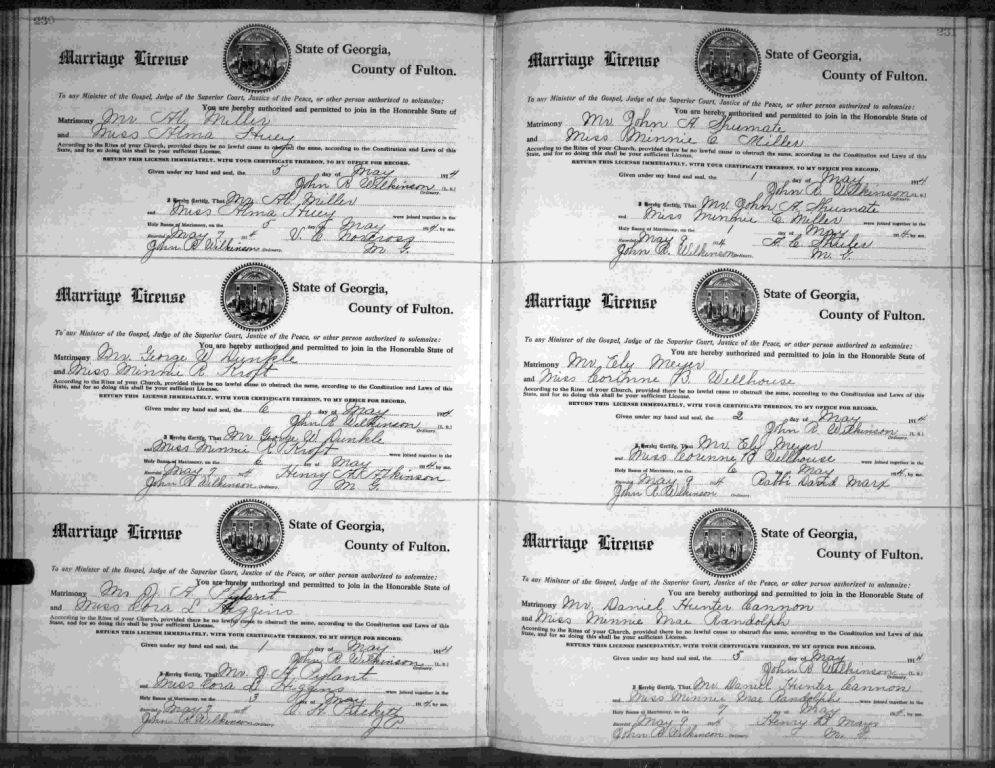 230
Marriage License
State of Georgia,
County of Fulton.
To any Minister of the Gospel, Judge of the Superior Court, Justice of the Peace, or other person authorized to solemnize:
You are hereby authorized and permitted to join in the Honorable State of
Matrimony Mr. Al. Miller
and Miss Alma Huey
According to the Rites of your Church, provided there be no lawful cause to obstruct the same, according to the Constitution and Laws of this
State, and for so doing this shall be your sufficient License.
RETURN THIS LICENSE IMMEDIATELY, WITH YOUR CERTIFICATE THEREON, TO MY OFFICE FOR RECORD.
Given under my hand and seal, the 5 day of May 1914
John R. Wilkinson (L. S.)
Ordinary.
I Hereby Certify, That Mr. Al. Miller
and Miss Alma Huey were joined together in the
Holy Bonds of Matrimony, on the 5 day of May 1914, by me.
Recorded May 7 1914 V. C. Norcross
John R. Wilkinson Ordinary. M. G.
Marriage License
State of Georgia,
County of Fulton.
To any Minister of the Gospel, Judge of the Superior Court, Justice of the Peace, or other person authorized to solemnize:
You are hereby authorized and permitted to join in the Honorable State of
Matrimony Mr. George W. Dunkle
and Miss Minnie R. Kroft
According to the Rites of your Church, provided there be no lawful cause to obstruct the same, according to the Constitution and Laws of this
State, and for so doing this shall be your sufficient License.
RETURN THIS LICENSE IMMEDIATELY, WITH YOUR CERTIFICATE THEREON, TO MY OFFICE FOR RECORD.
Given under my hand and seal, the 6 day of May 1914
John R. Wilkinson (L. S.)
Ordinary.
I Hereby Certify, That Mr. George W. Dunkle
and Miss Minnie R. Kroft were joined together in the
Holy Bonds of Matrimony, on the 6 day of May 1914, by me.
Recorded May 7 1914 Henry Atkinson
John R. Wilkinson Ordinary. M. G.
Marriage License
State of Georgia,
County of Fulton.
To any Minister of the Gospel, Judge of the Superior Court, Justice of the Peace, or other person authorized to solemnize:
You are hereby authorized and permitted to join in the Honorable State of
Matrimony Mr. J. A. Pylant
and Miss Cora L. Higgins
According to the Rites of your Church, provided there be no lawful cause to obstruct the same, according to the Constitution and Laws of this
State, and for so doing this shall be your sufficient License.
RETURN THIS LICENSE IMMEDIATELY, WITH YOUR CERTIFICATE THEREON, TO MY OFFICE FOR RECORD.
Given under my hand and seal, the 1 day of May 1914
John R. Wilkinson (L. S.)
Ordinary.
I Hereby Certify, That Mr. J. A. Pylant
and Miss Cora L. Higgins were joined together in the
Holy Bonds of Matrimony, on the 3 day of May 1914, by me.
Recorded May 7 1914 C. H. Puckett
John R. Wilkinson Ordinary. J. P.
231
Marriage License
State of Georgia,
County of Fulton.
To any Minister of the Gospel, Judge of the Superior Court, Justice of the Peace, or other person authorized to solemnize:
You are hereby authorized and permitted to join in the Honorable State of
Matrimony Mr. John A Shumate
and Miss Minnie E. Miller
According to the Rites of your Church, provided there be no lawful cause to obstruct the same, according to the Constitution and Laws of this
State, and for so doing this shall be your sufficient License.
RETURN THIS LICENSE IMMEDIATELY, WITH YOUR CERTIFICATE THEREON, TO MY OFFICE FOR RECORD.
Given under my hand and seal, the 1 day of May 1914
John R. Wilkinson (L. S.)
Ordinary.
I Hereby Certify, That Mr. John A. Shumate
and Miss Minnie E. Miller were joined together in the
Holy Bonds of Matrimony, on the 1 day of May 1914, by me.
Recorded May 9 1914 A. C.
John R. Wilkinson Ordinary. M. G.
Marriage License
State of Georgia,
County of Fulton.
To any Minister of the Gospel, Judge of the Superior Court, Justice of the Peace, or other person authorized to solemnize:
You are hereby authorized and permitted to join in the Honorable State of
Matrimony Mr. Ely Meyer
and Miss Corinne B. Wellhouse
According to the Rites of your Church, provided there be no lawful cause to obstruct the same, according to the Constitution and Laws of this
State, and for so doing this shall be your sufficient License.
RETURN THIS LICENSE IMMEDIATELY, WITH YOUR CERTIFICATE THEREON, TO MY OFFICE FOR RECORD.
Given under my hand and seal, the 2 day of May 1914
John R. Wilkinson (L. S.)
Ordinary.
I Hereby Certify, That Mr. Ely Meyer
and Miss Corinne B Wellhouse were joined together in the
Holy Bonds of Matrimony, on the 6 day of May 1914, by me.
Recorded May 9 1914 Rabbi David Marx
John R. Wilkinson Ordinary.
Marriage License
State of Georgia,
County of Fulton.
To any Minister of the Gospel, Judge of the Superior Court, Justice of the Peace, or other person authorized to solemnize:
You are hereby authorized and permitted to join in the Honorable State of
Matrimony Mr. Daniel Hunter Cannon
and Miss Minnie Mae Randolph
According to the Rites of your Church, provided there be no lawful cause to obstruct the same, according to the Constitution and Laws of this
State, and for so doing this shall be your sufficient License.
RETURN THIS LICENSE IMMEDIATELY, WITH YOUR CERTIFICATE THEREON, TO MY OFFICE FOR RECORD.
Given under my hand and seal, the 5 day of May 1914
John R. Wilkinson (L. S.)
Ordinary.
I Hereby Certify, That Mr. Daniel Hunter Cannon
and Miss Minnie Mae Randolph were joined together in the
Holy Bonds of Matrimony, on the 7 day of May 1914, by me.
Recorded May 9 1914 Henry B. Mays
John R. Wilkinson Ordinary. M. G.